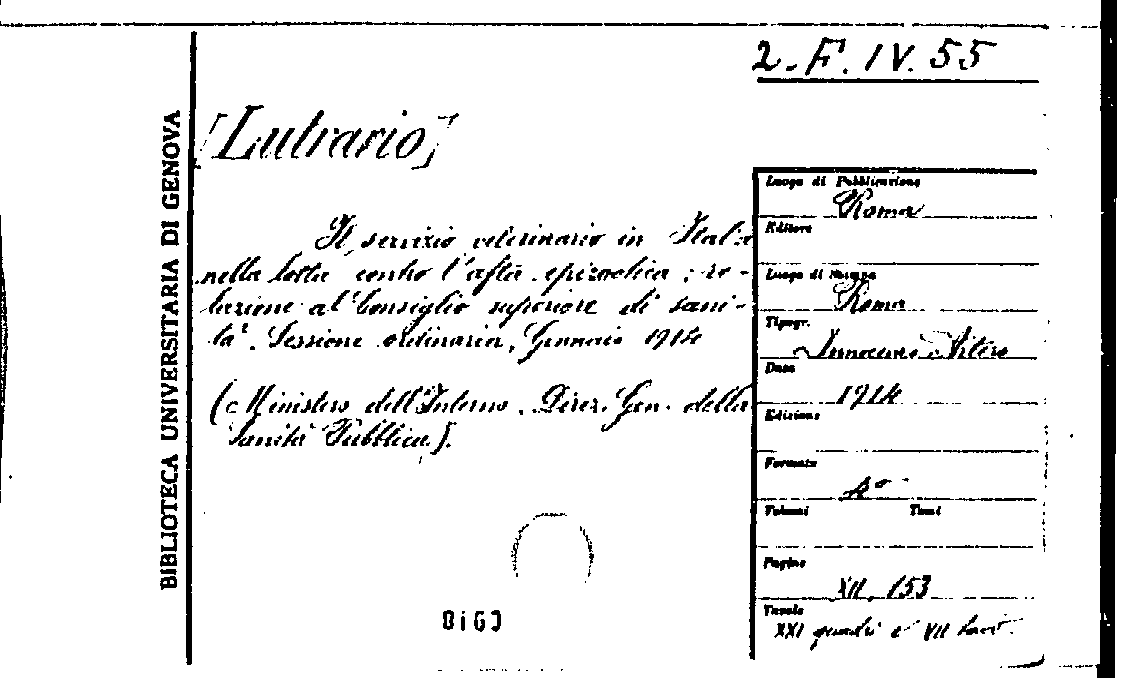 2. F. IV. 55
BIBLIOTECA UNIVERSITARIA DI GENOVA
[Lutrario]
Il servizio veterinario in Italia
nella lotta contro l'afta epizootica; re-
lazione al Consiglio superiore di sani-
tà. Sessione ordinaria, Gennaio 1914
(Ministero dell'Interno. Direz. Gen. della
Sanità Pubblica).
Luogo di Pubblicazione
Roma
Editore
Luogo di Stampa
Roma
Tipogr.
Innocenzo Artero
Data
1914
Edizione
Formato
4°
Volumi Tomi
Pagine
XII, 153
Tavole
XXI quadri e VII tavv.